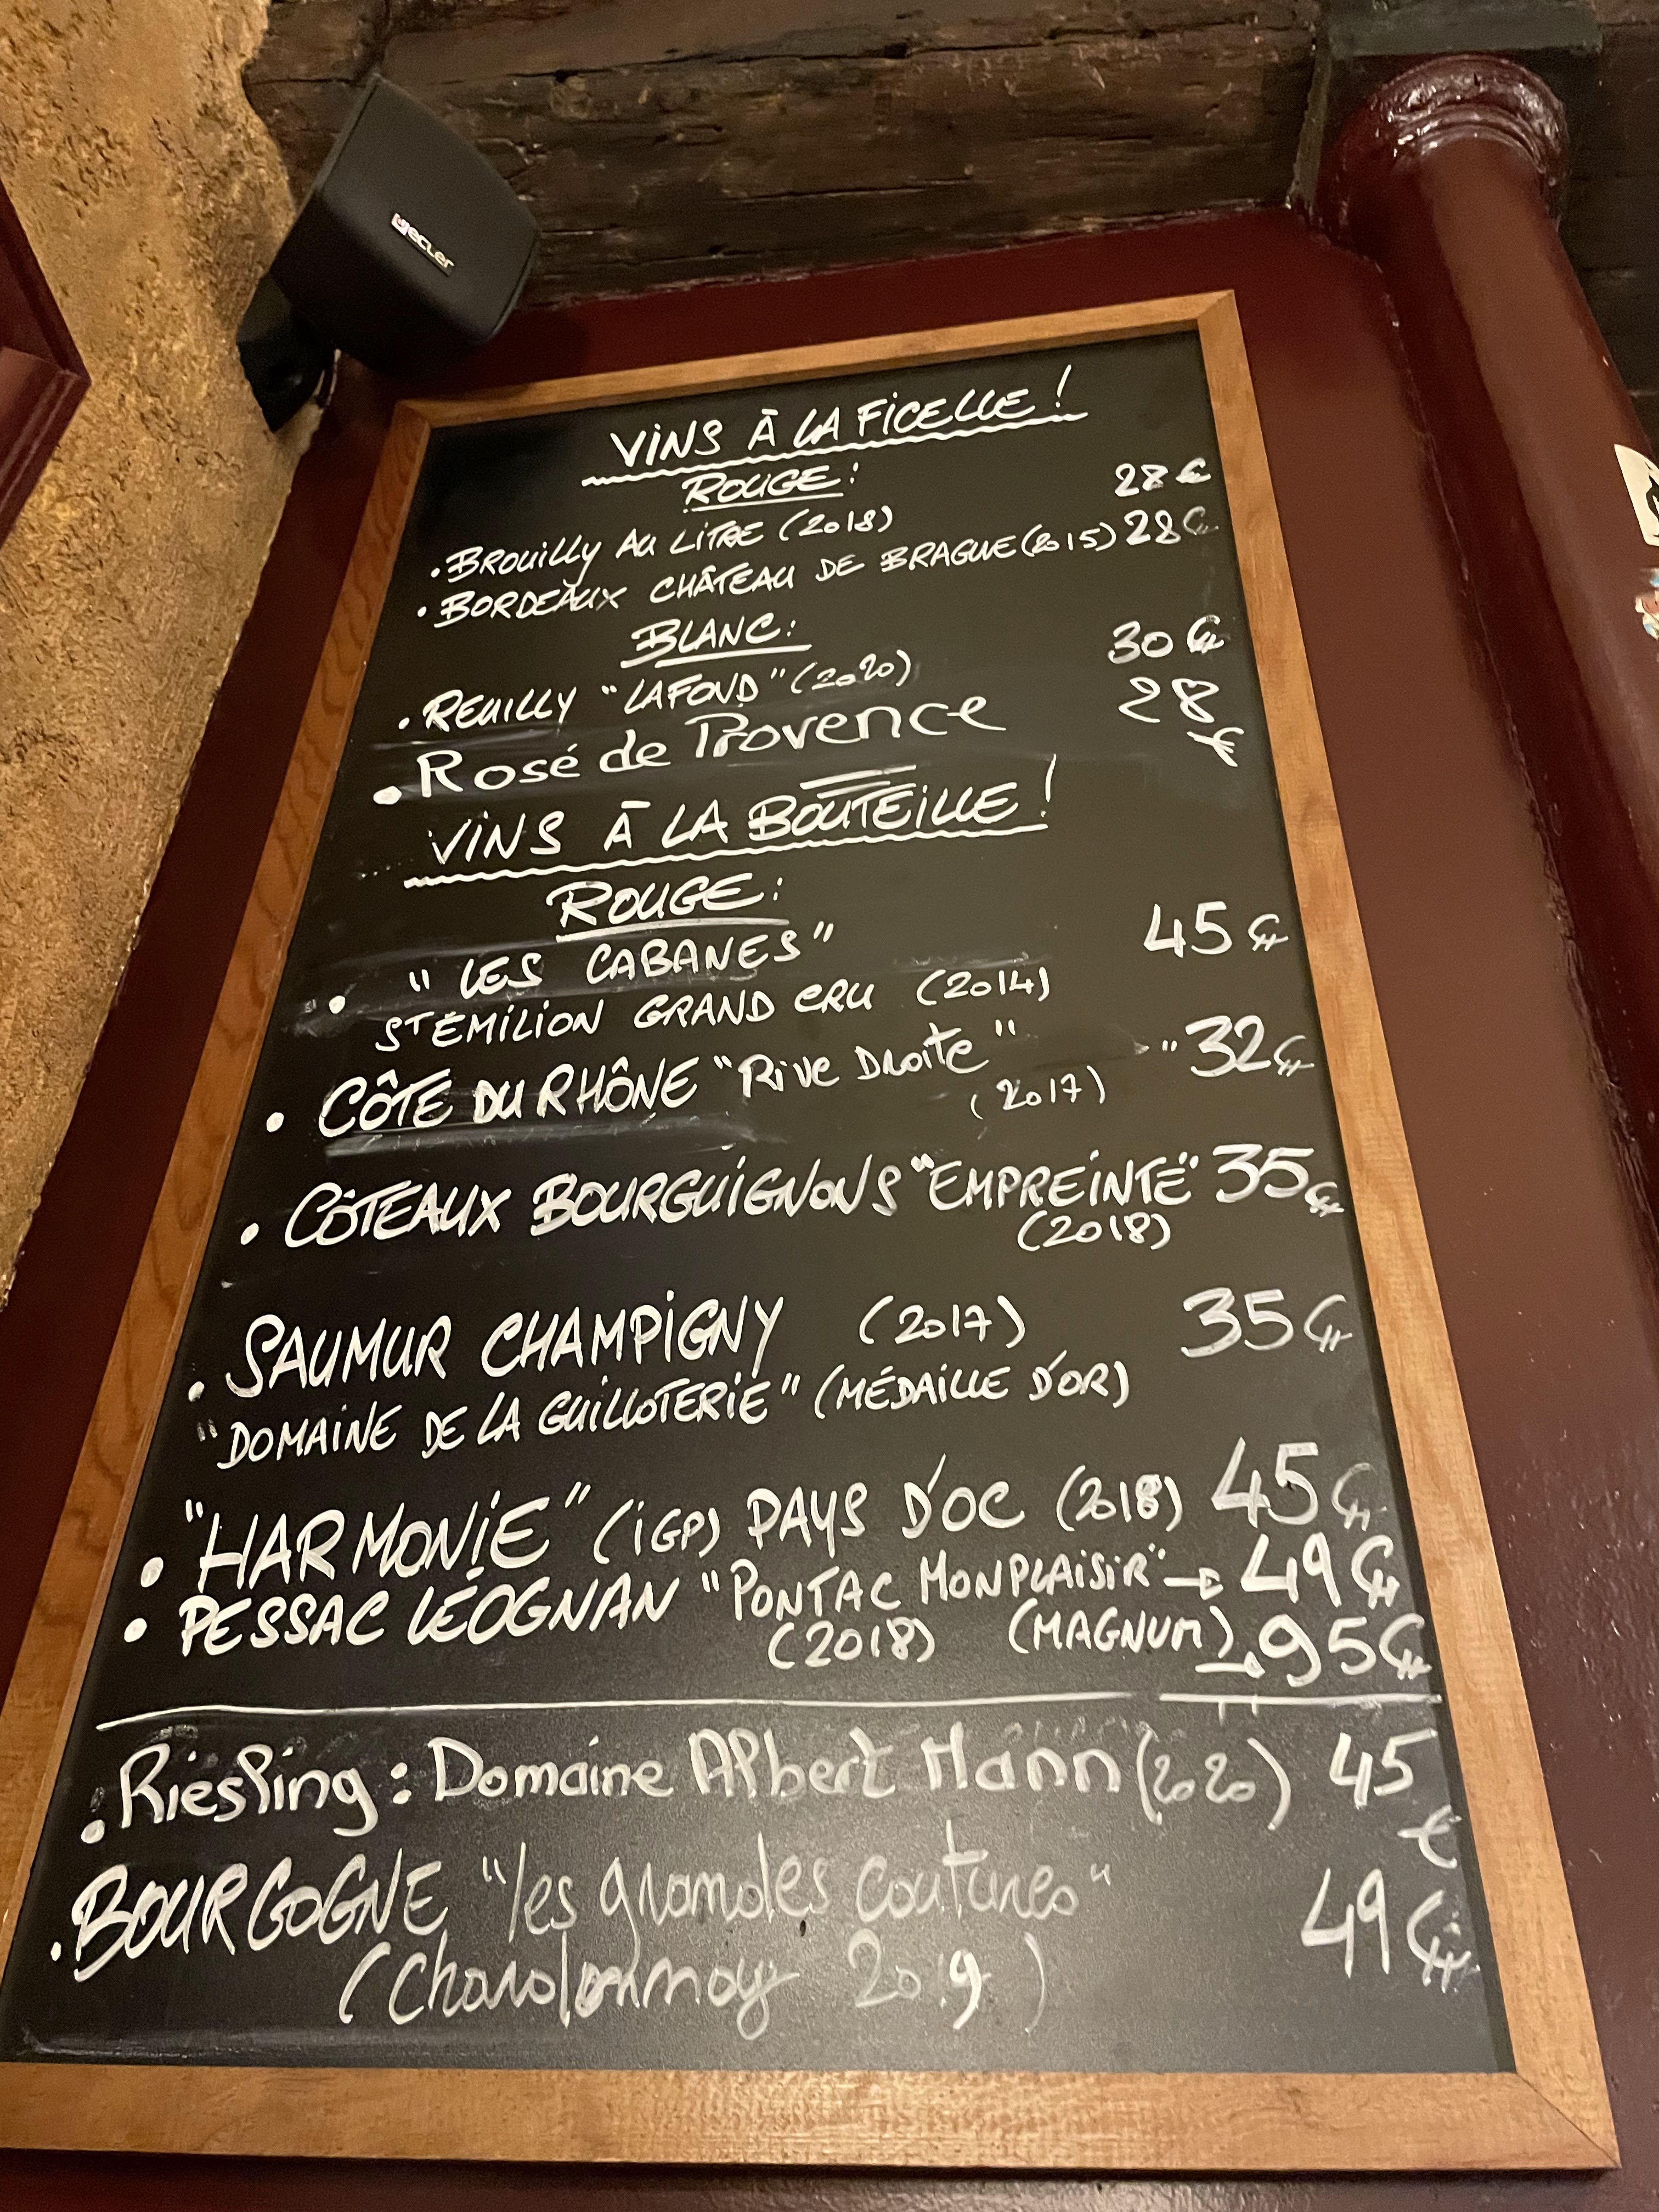 ECLER
VINS À LA FICELLE !
ROUGE :
• BROUILLY AU LITRE (2018) 28€
• BORDEAUX CHÂTEAU DE BRAGUE (2015) 28€
BLANC :
• REUILLY "LAFOND" (2020) 30€
• Rosé de Provence 28€
VINS À LA BOUTEILLE !
ROUGE :
• "LES CABANES" 45€
ST ÉMILION GRAND CRU (2014)
• CÔTE DU RHÔNE "Rive Droite" " 32€
(2017)
• CÔTEAUX BOURGUIGNONS "EMPREINTE" 35€
(2018)
• SAUMUR CHAMPIGNY (2017) 35€
"DOMAINE DE LA GUILLOTERIE" (MÉDAILLE D'OR)
• "HARMONIE" (IGP) PAYS D'OC (2018) 45€
• PESSAC LÉOGNAN "PONTAC MONPLAISIR" → 49€
(2018) (MAGNUM) → 95€
• Riesling : Domaine Albert Mann (2020) 45€
• BOURGOGNE "les grandes coutures" 49€
(Chardonnay 2019)